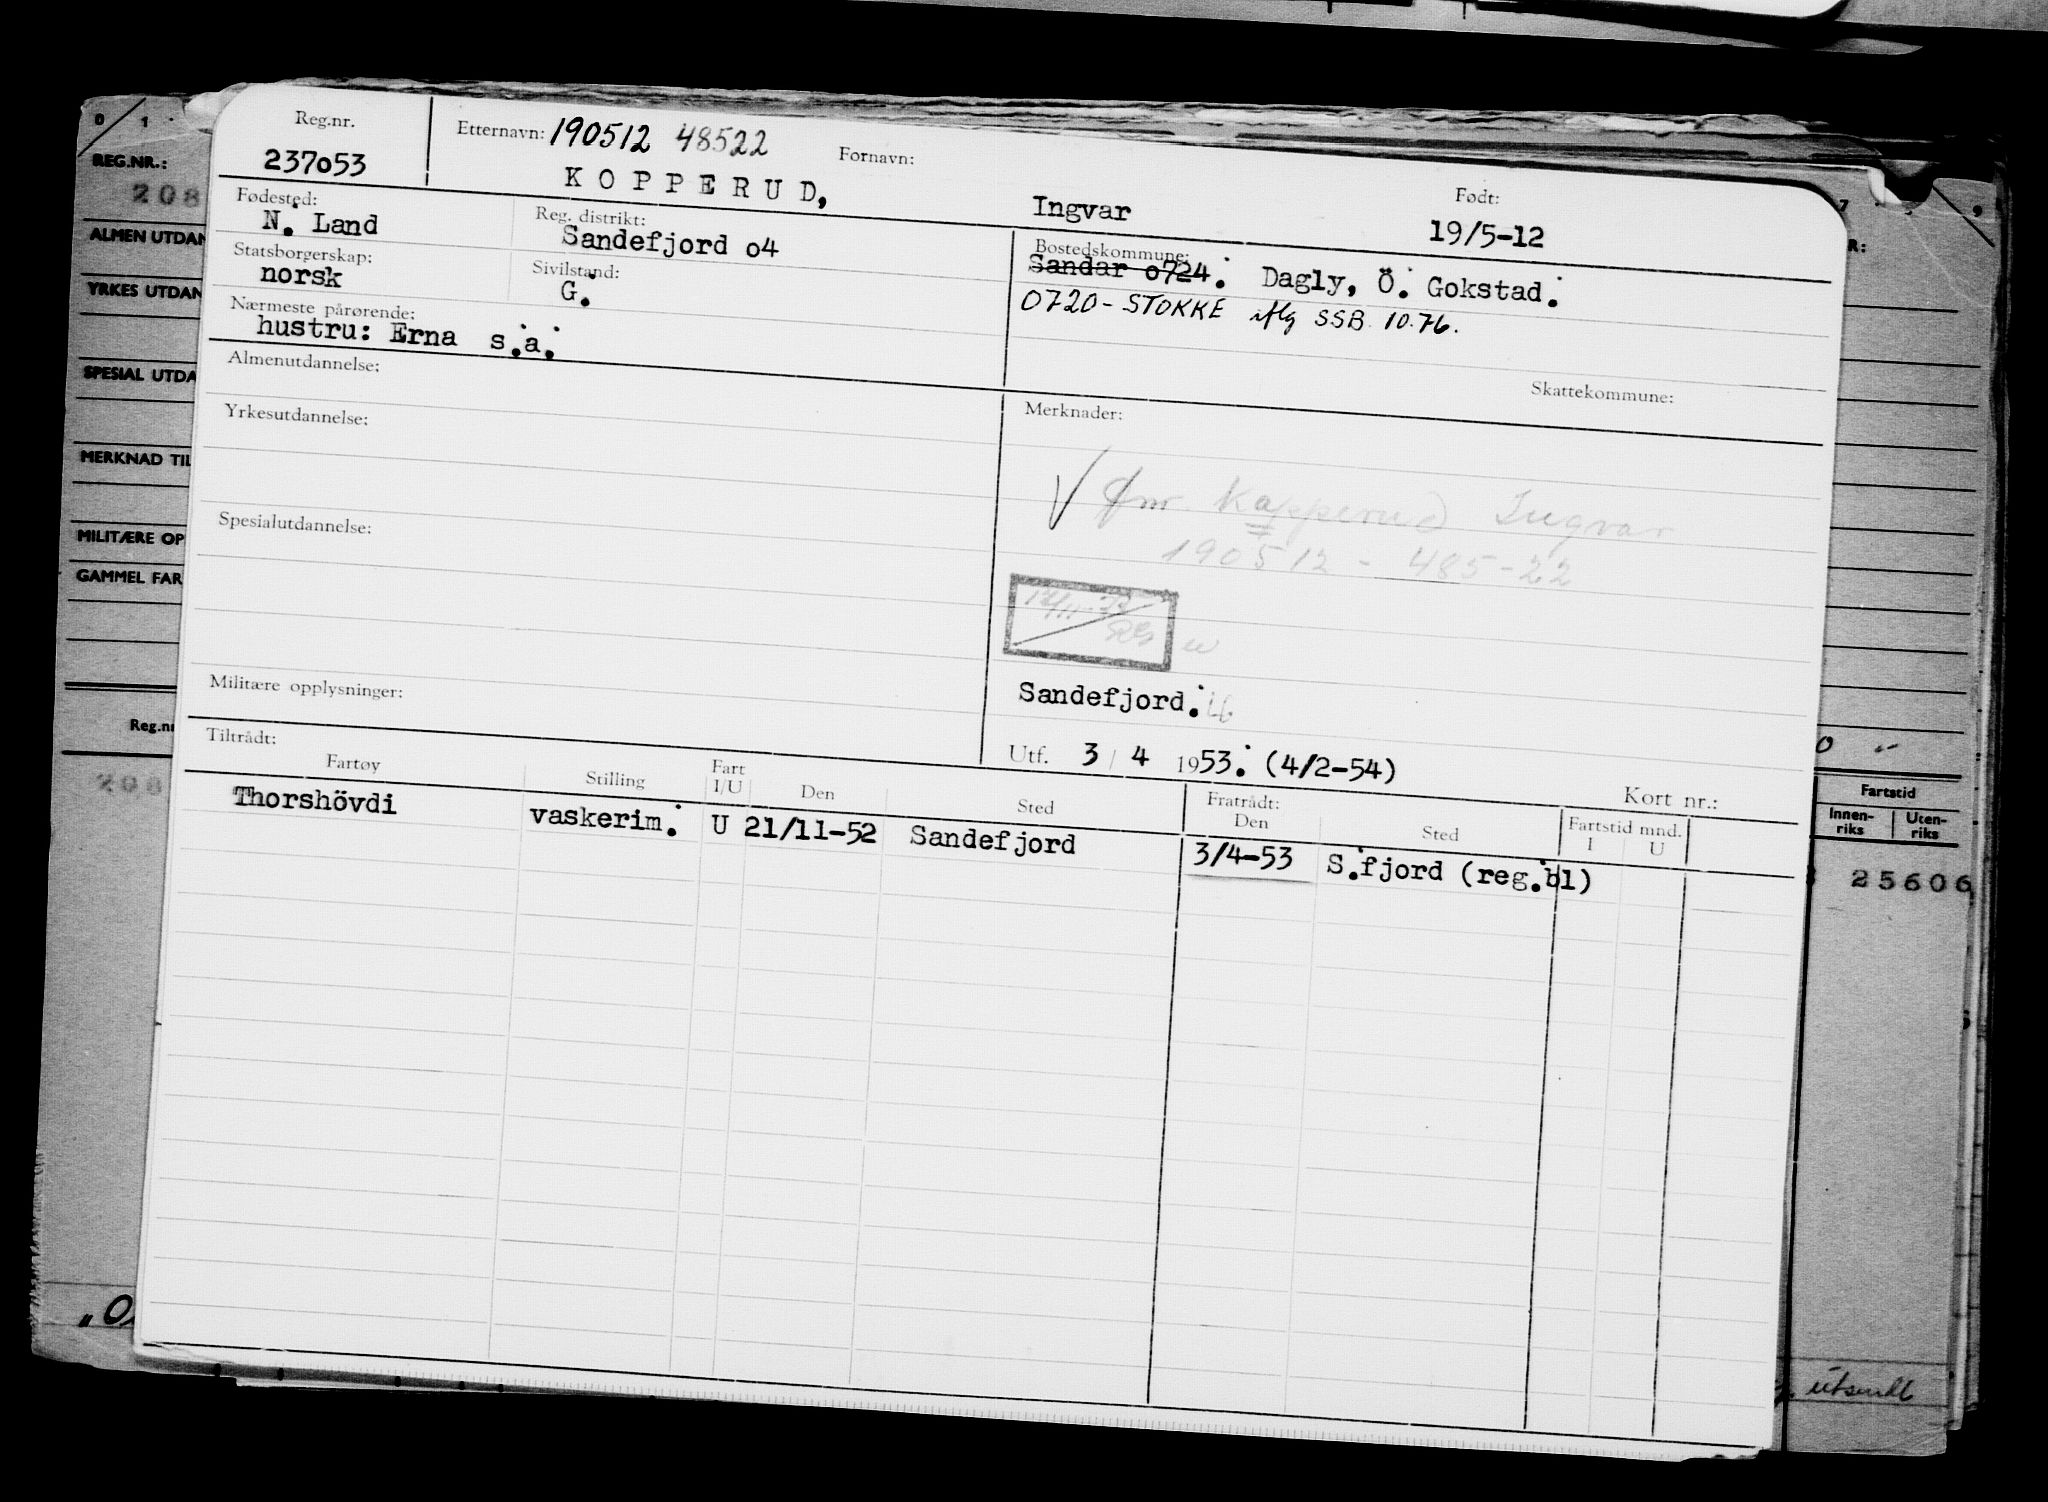 0 1
REG.NR.:
208
ALMEN UTDAN
YRKES UTDAN
SPESIAL UTDA
MERKNAD TIL
MILITÆRE OP
GAMMEL FAR
Reg.n
208
Reg.nr.
237o53
Etternavn: 190512 48522
KOPPERUD,
Fornavn:
Ingvar
Født:
19/5-12
Fødested:
N. Land
Reg. distrikt:
Sandefjord o4
Statsborgerskap:
norsk
Sivilstand:
G.
Nærmeste pårørende:
hustru: Erna s.a.
Bostedskommune:
Sandar o724. Dagly, Ö. Gokstad.
0720-STOKKE iflg SSB 10.76.
Skattekommune:
Almenutdannelse:
Yrkesutdannelse:
Spesialutdannelse:
Militære opplysninger:
Merknader:
Kapperud Ingvar
190512 - 485-22
Sandefjord.
Utf. 3 / 4 1953. (4/2-54)
Tiltrådt:
Fartøy Stilling Fart I/U Den Sted
Fratrådt:
Den Sted
Kort nr.:
Fartstid mnd.
I U
Thorshövdi vaskerim. U 21/11-52 Sandefjord 3/4-53 S.fjord (reg.bl)
Fartstid
Innen-
riks
Uten-
riks
25606
utsendt